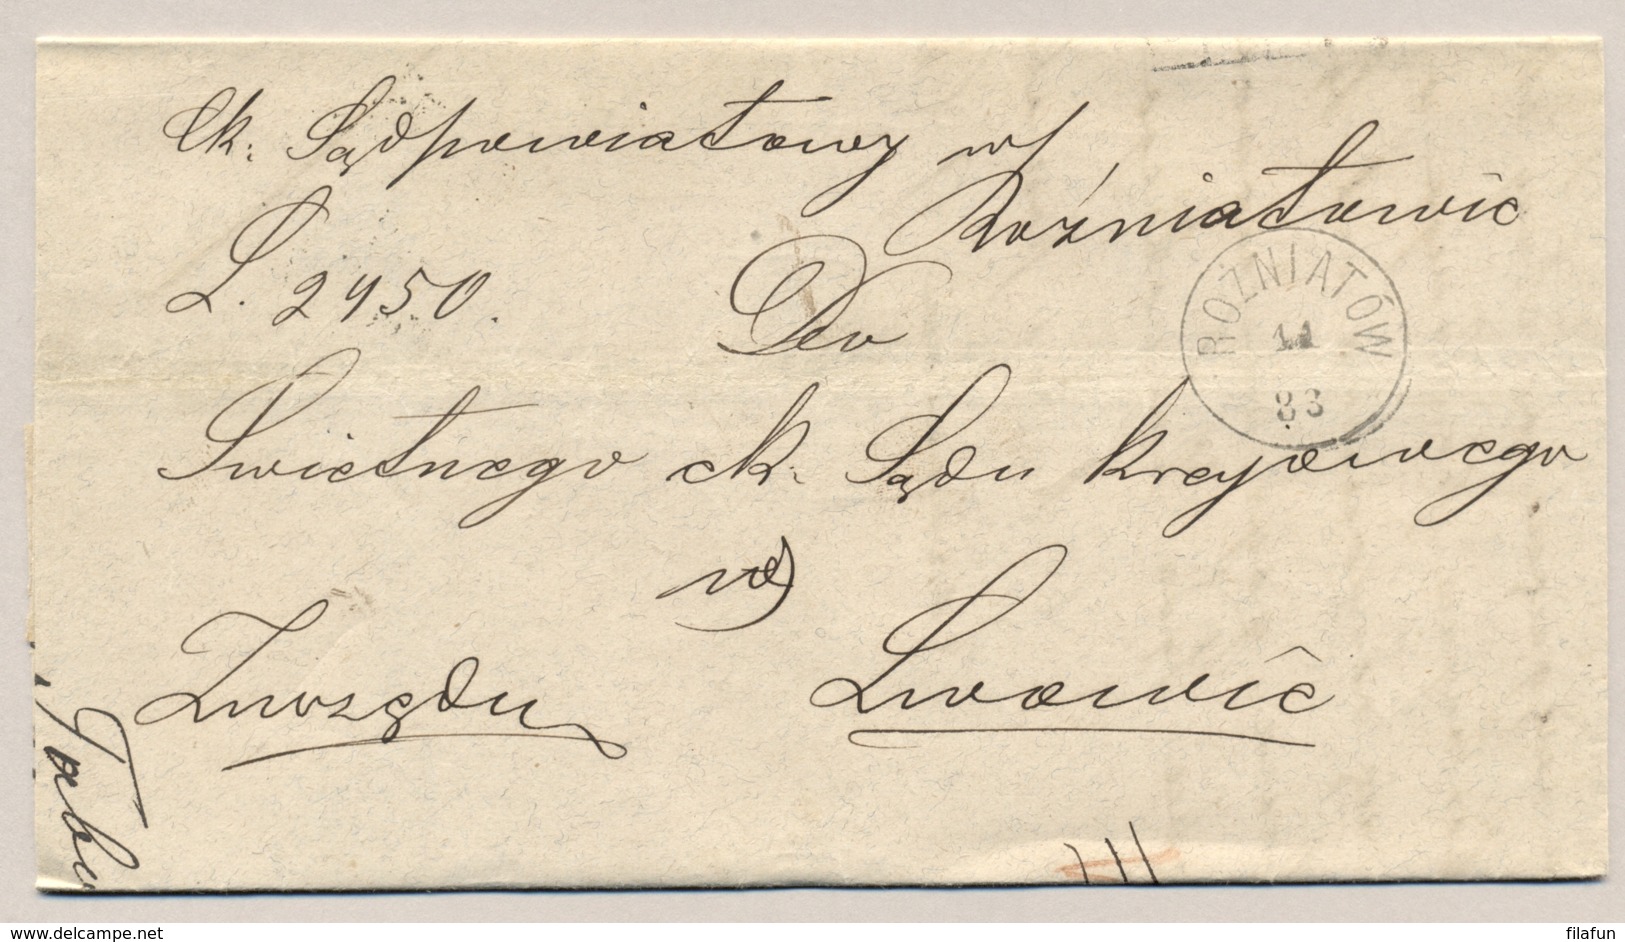 Ck. Sąd powiatowy w
Rożniatowie
L. 2450.
Do
ROŻNIATÓW
11
83
Swietnego ck. Sądu krajowego
we
Lwowie
Z urzędu
Tabu
www.delcampe.net
filafun